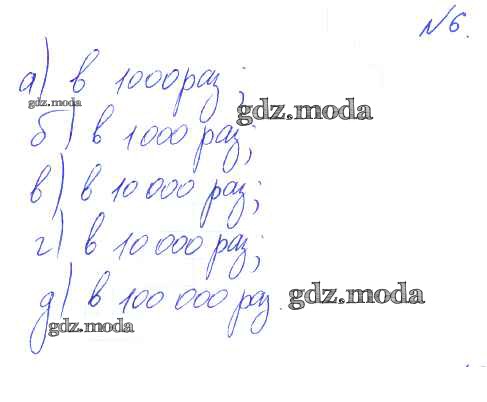 №6.
а) в 1000 раз;
gdz.moda
gdz.moda
б) в 1000 раз;
в) в 10 000 раз;
г) в 10 000 раз;
д) в 100 000 раз.
gdz.moda
gdz.moda